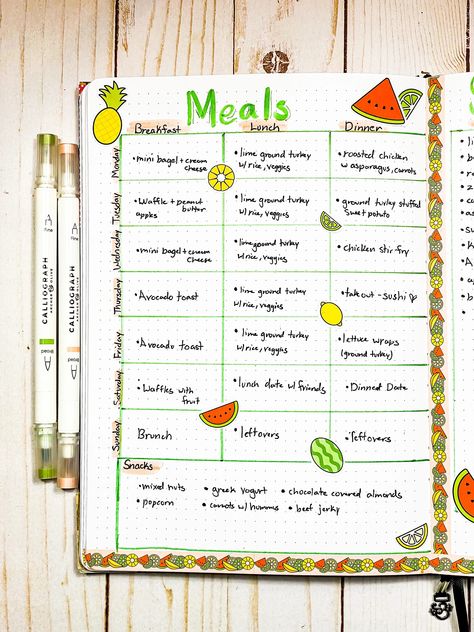 Meals
Breakfast Lunch Dinner
Monday
• mini bagel + cream cheese
• lime ground turkey w/ rice, veggies
• roasted chicken w asparagus, carrots
Tuesday
• Waffle + peanut butter apples
lime ground turkey w/ rice, veggies
• ground turkey stuffed sweet potato
Wednesday
• mini bagel + cream cheese
lime ground turkey w/ rice, veggies
• chicken stir-fry
Thursday
• Avocado toast
• lime ground turkey w/ rice, veggies
• takeout - sushi ♡
Friday
• Avocado toast
• lime ground turkey w/ rice, veggies
• lettuce wraps (ground turkey)
Saturday
• Waffles with fruit
• lunch date w/ friends
• Dinned Date
Sunday
Brunch
• leftovers
• leftovers
Snacks
• mixed nuts • greek yogurt • chocolate covered almonds
• popcorn • carrots w/ hummus • beef jerky
A fine
CALLIOGRAPH
ARCHER & OLIVE
A fine
CALLIOGRAPH
ARCHER & OLIVE